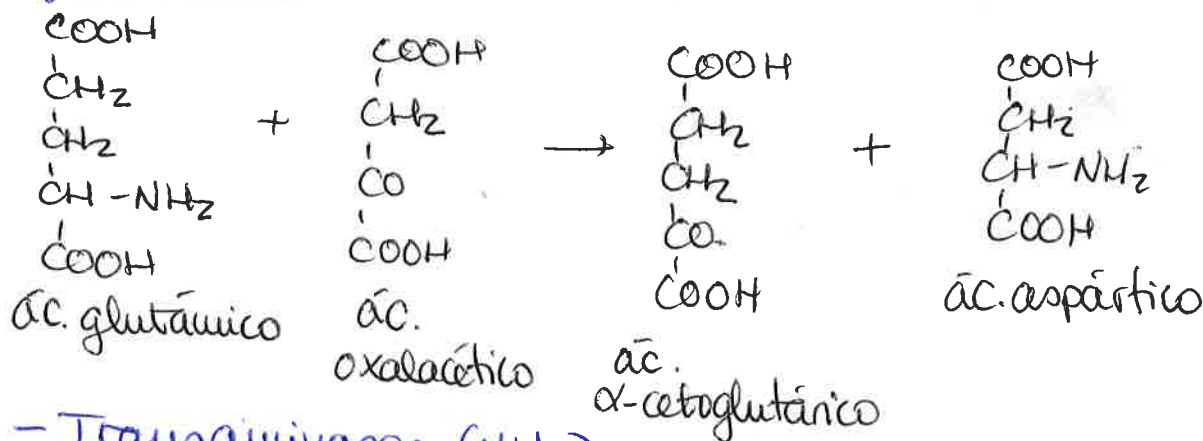 COOH
CH2
CH2
CH-NH2
COOH
ác. glutámico
+
COOH
CH2
CO
COOH
ác.
oxalacético
→
COOH
CH2
CH2
CO
COOH
ác.
α-cetoglutárico
+
COOH
CH2
CH-NH2
COOH
ác. aspártico